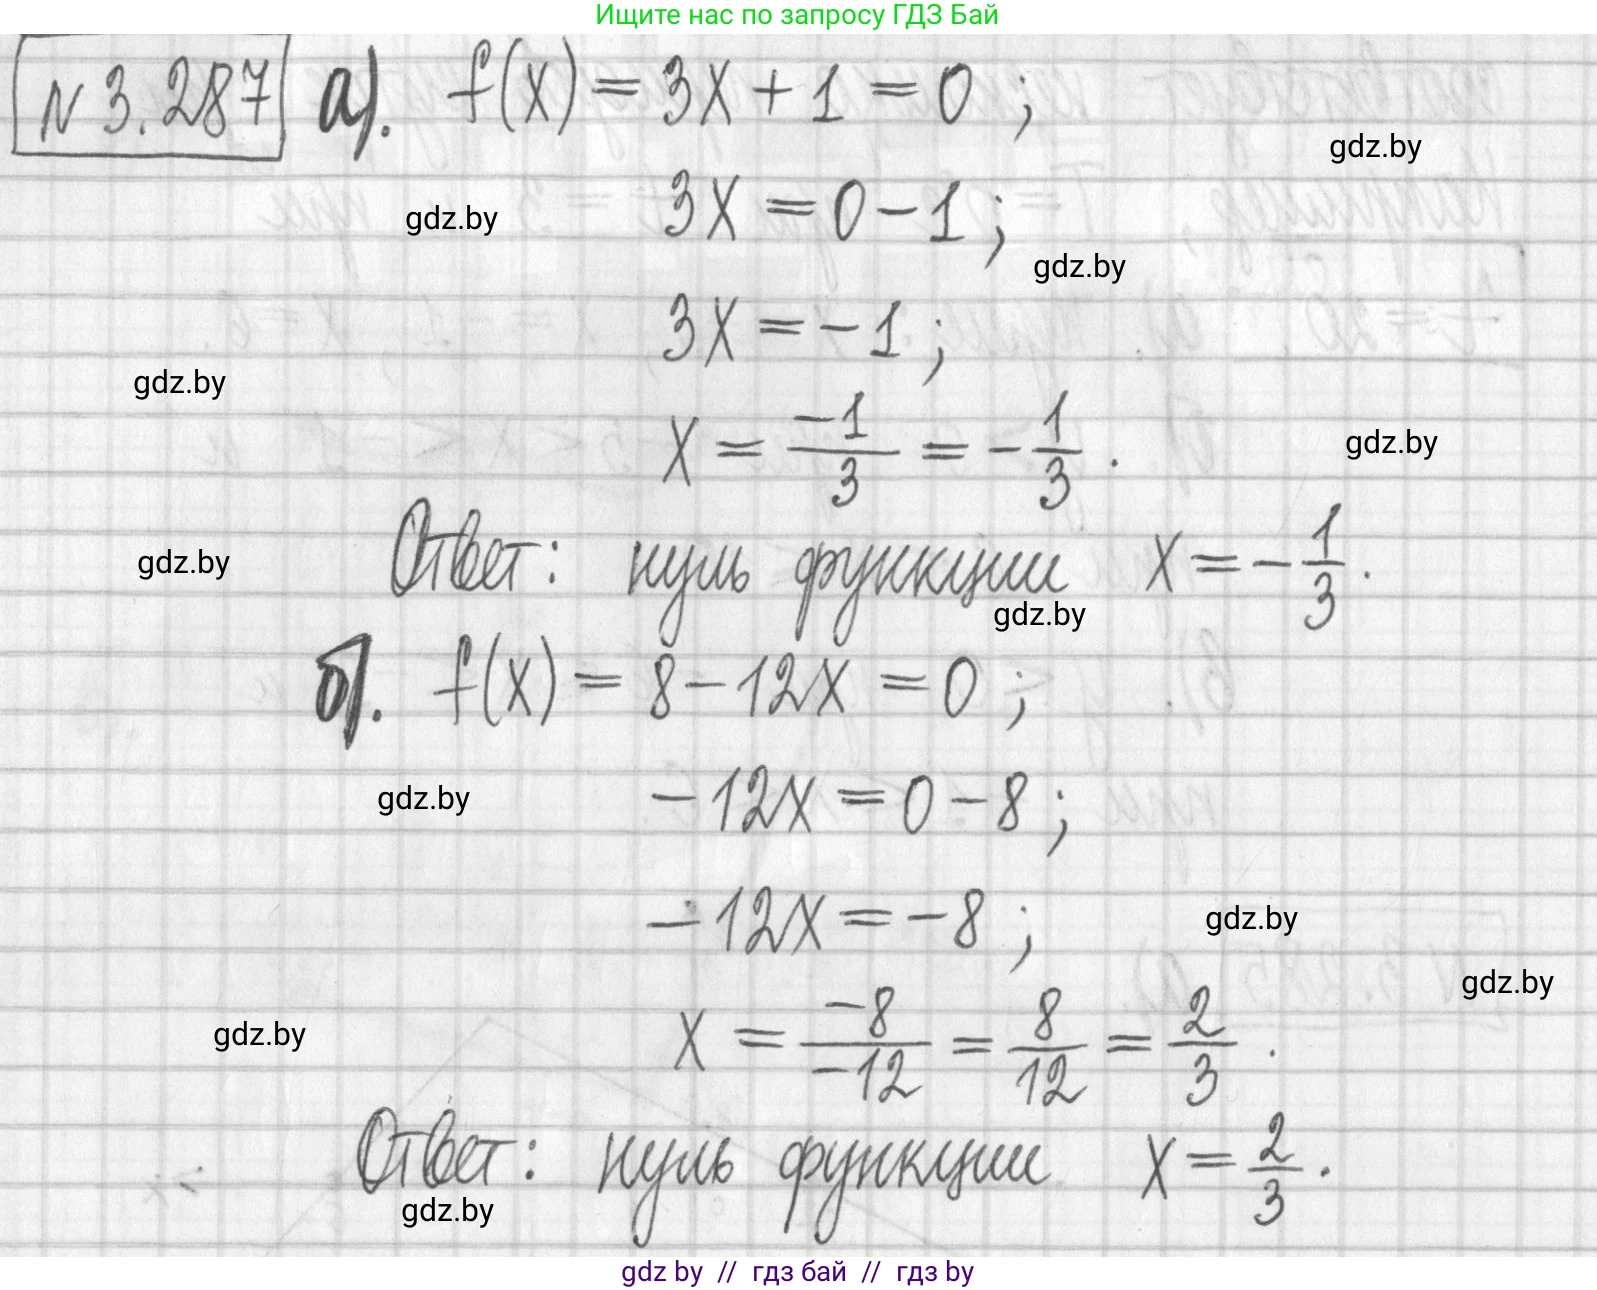 Ищите нас по запросу ГДЗ Бай
N 3.287 а). f(x) = 3x + 1 = 0 ;
gdz.by
gdz.by 3x = 0 - 1 ;
gdz.by
3x = -1 ;
gdz.by
x = -1/3 = -1/3 .
gdz.by
gdz.by Ответ: нуль функции x = -1/3 .
gdz.by
б). f(x) = 8 - 12x = 0 ;
gdz.by -12x = 0 - 8 ;
-12x = -8 ;
gdz.by
gdz.by
gdz.by x = -8/-12 = 8/12 = 2/3 .
Ответ: нуль функции x = 2/3 .
gdz.by
gdz by // гдз бай // гдз by